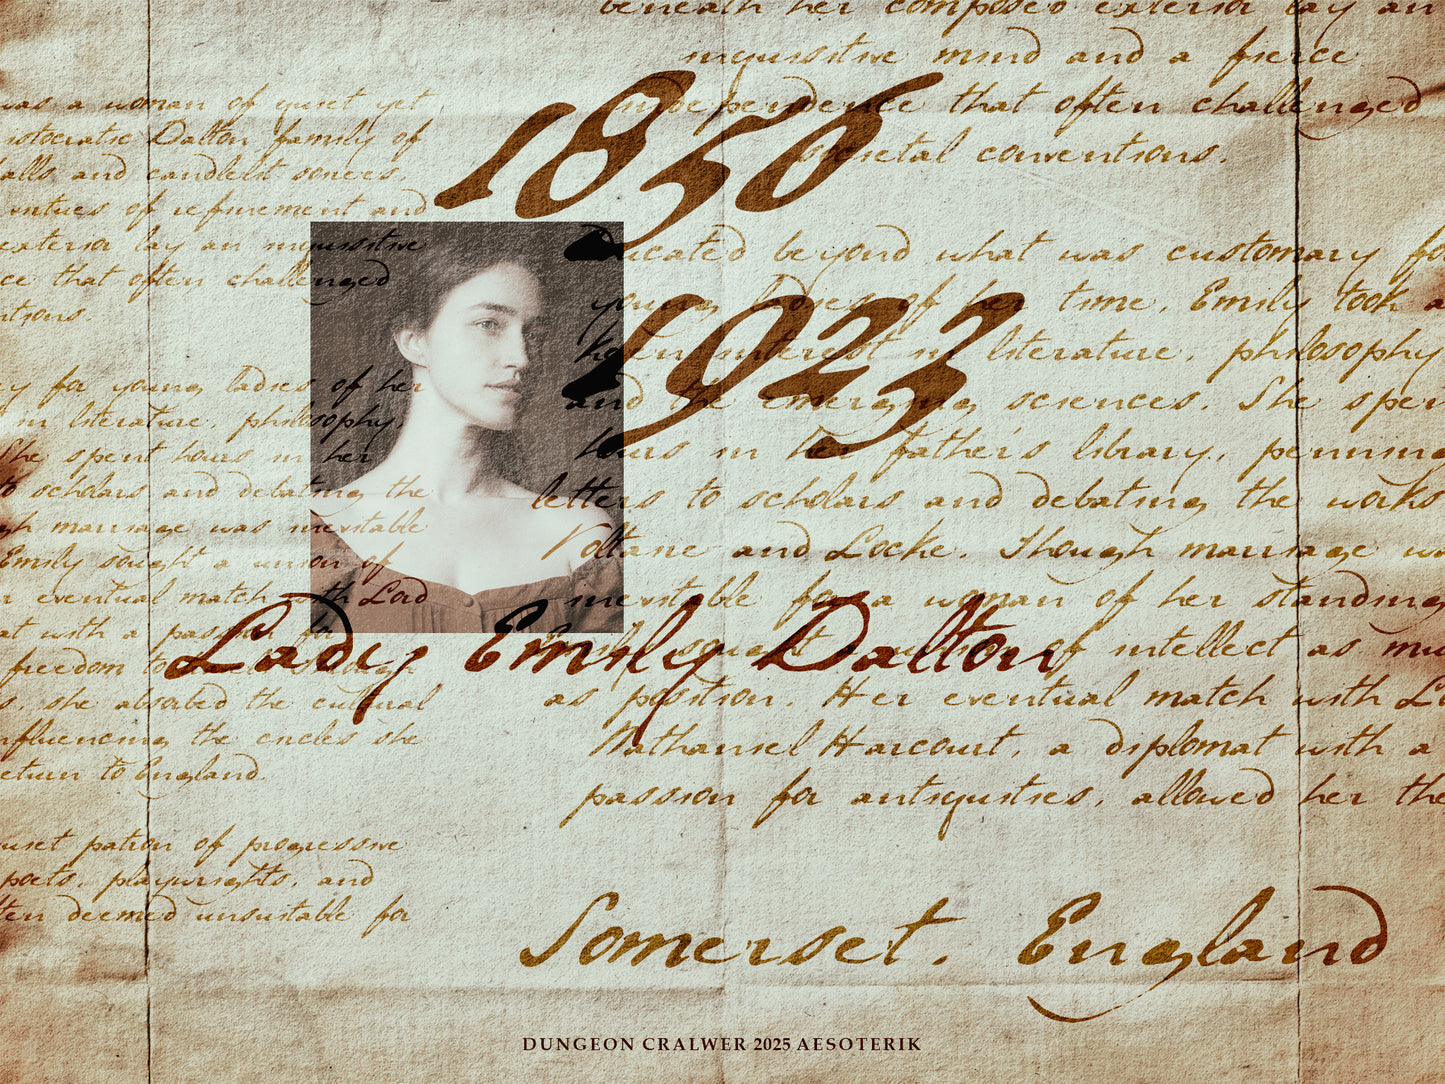 beneath her composed exterior lay an
inquisitive mind and a fierce
independence that often challenged
societal conventions.
1856
1923
was a woman of quiet yet
aristocratic Dalton family of
halls and candlelit soirees,
virtues of refinement and
exterior lay an inquisitive
ce that often challenged
ntions.
Educated beyond what was customary for
young ladies of her time, Emily took a
keen interest in literature, philosophy
and the emerging sciences. She spen
hours in her father's library, penning
letters to scholars and debating the works
Voltaire and Locke. Though marriage wa
inevitable for a woman of her standing
Emily sought a union of intellect as mu
as position. Her eventual match with Lo
Nathaniel Harcourt, a diplomat with a
passion for antiquities, allowed her the
ry for young ladies of her
in literature, philosophy,
She spent hours in her
to scholars and debating the
gh marriage was inevitable
Emily sought a union of
r eventual match with Lord
at with a passion for
freedom to
s, she absorbed the cultural
nfluencing the circles she
return to England.
Lady Emily Dalton
quiet patron of progressive
poets, playwrights, and
ften deemed unsuitable for
Somerset, England
DUNGEON CRALWER 2025 AESOTERIK